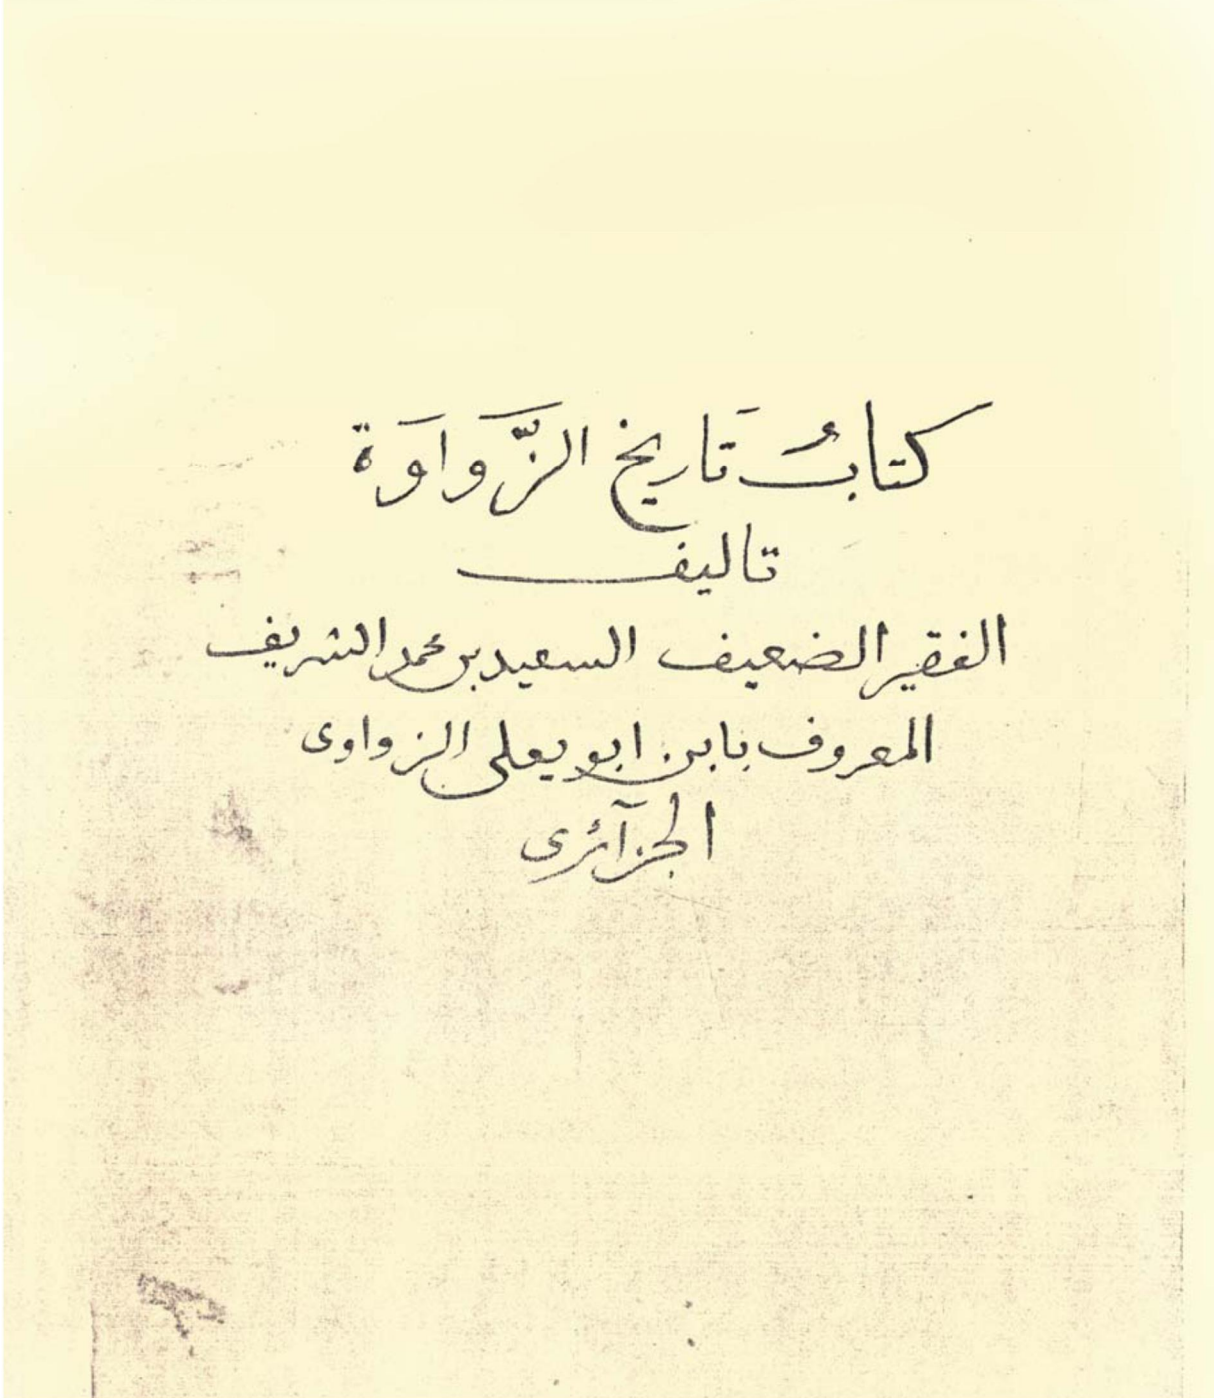 كتابُ تَاريخ الزَّوَاوَة
تاليف
الفقير الضعيف السعيد بن محمد الشريف
المعروف بابن ابو يعلى الزواوى
الجزآئرى